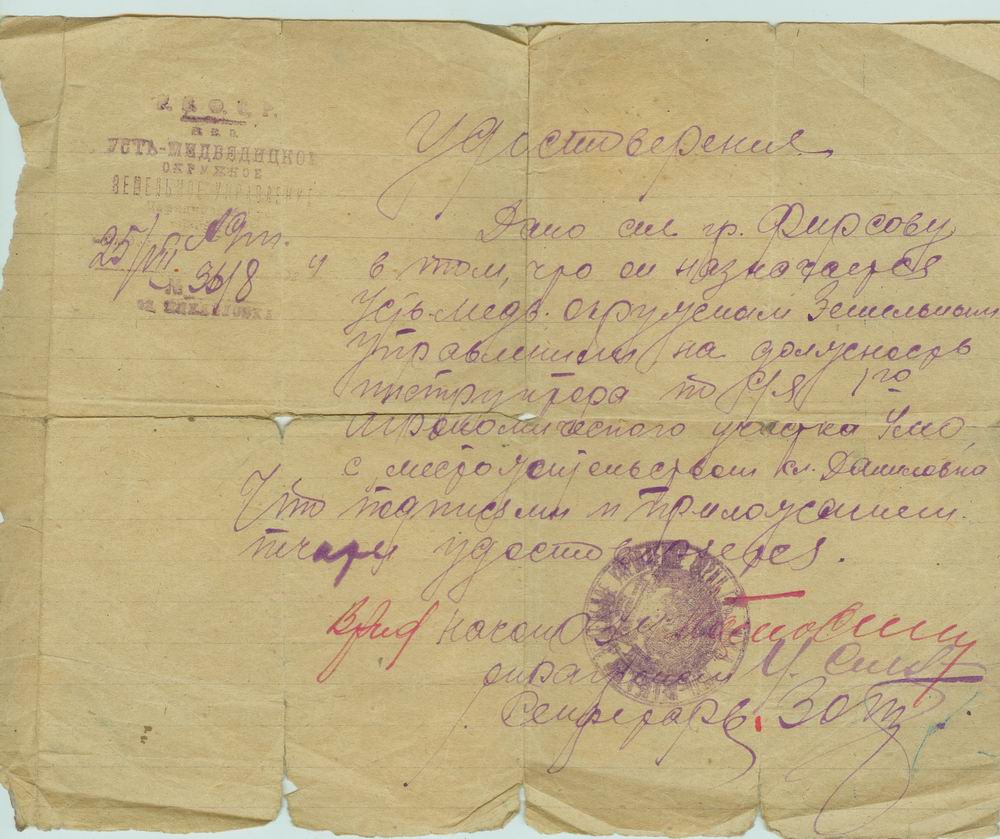 Р.С.Ф.С.Р.
Н.К.З.
УСТЬ-МЕДВЕДИЦКОЕ
ОКРУЖНОЕ
ЗЕМЕЛЬНОЕ УПРАВЛЕНИЕ
25/VII
№ 3618
сл. МИХАЙЛОВКА
Удостоверения
Дано сие гр. Фирсову
в том, что он назначается
Усть-Медв. окружным Земельным
Управлением на должность
инструктора по С/Х 1го
Агрономического участка УМО,
с местожительством сл. Даниловка
Что подписями и приложением
печати удостоверяется.
Врид Начок
окрагроном
Секретарь